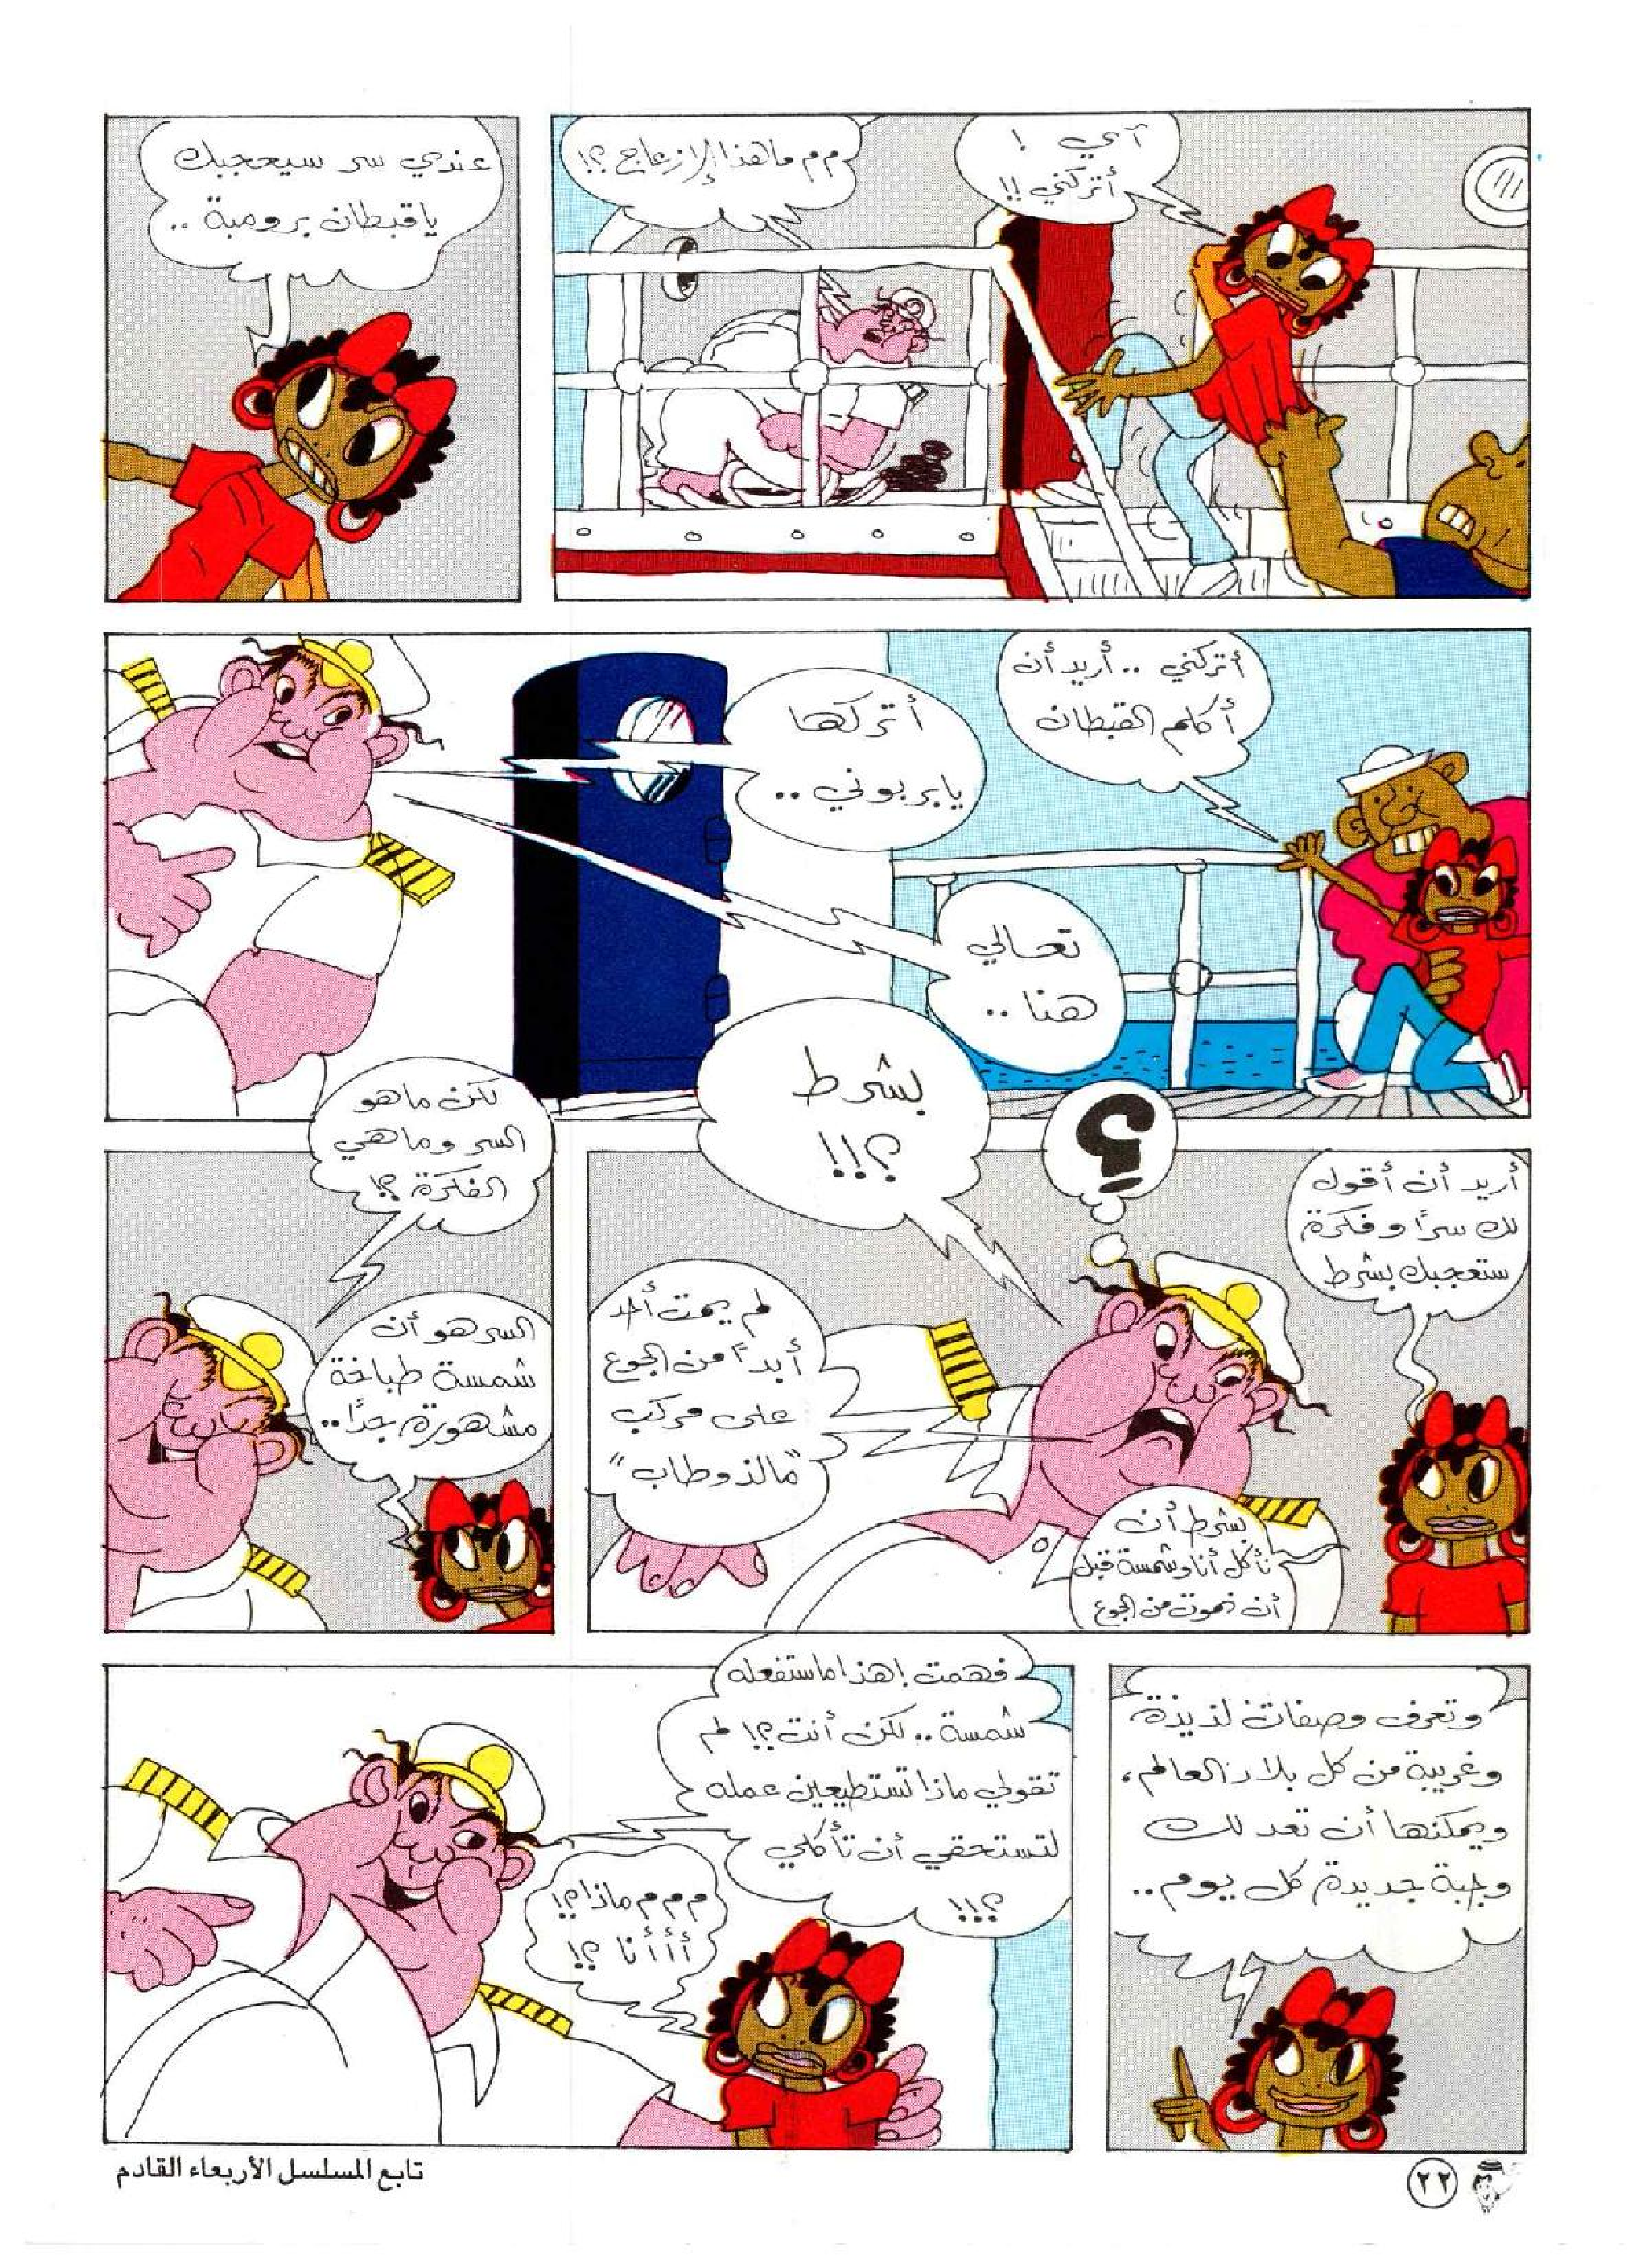 آي !
أتركني !!
م م ما هذا الإزعاج ؟!
عندي سر سيعجبك
يا قبطان برومبة ..
أتركني .. أريد أن
أكلم القبطان
أتركها
يا بربوني ..
تعالي
هنا ..
أريد أن أقول
لك سرًا وفكرة
ستعجبك بشرط
؟
بشرط
؟!!!
بشرط أن
نأكل أنا وشمسة قبل
أن نموت من الجوع
لم يمت أحد
أبدًا من الجوع
على مركب
"مالذ وطاب"
لكن ما هو
السر وما هي
الفكرة ؟!
السر هو أن
شمسة طباخة
مشهورة جدًا ..
وتعرف وصفات لذيذة
وغريبة من كل بلاد العالم ،
ويمكنها أن تعد لك
وجبة جديدة كل يوم ..
فهمت ! هذا ما ستفعله
شمسة .. لكن أنت ؟! لم
تقولي ماذا تستطيعين عمله
لتستحقي أن تأكلي
؟!!!
م م م م ماذا ؟!
أ أ أ أنا ؟!
٢٢
تابع المسلسل الأربعاء القادم